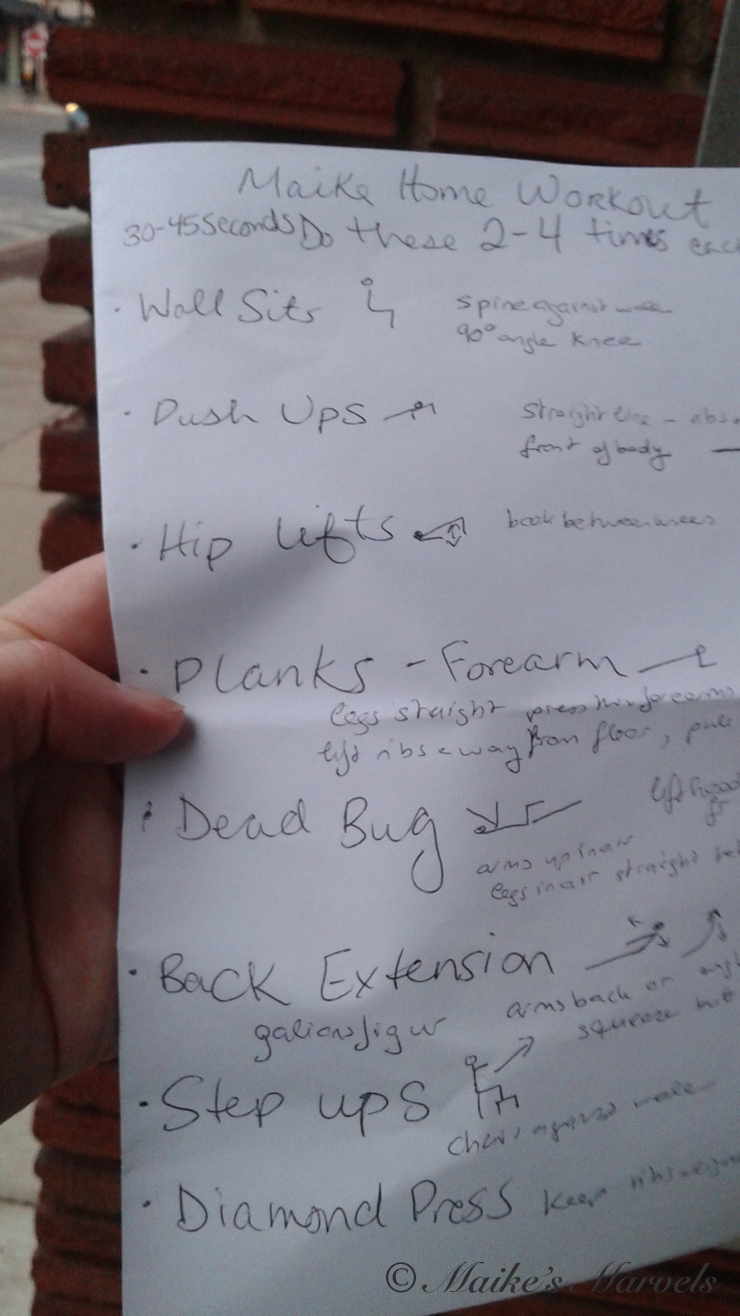 Maike Home Workout
30-45 Seconds Do these 2-4 times eac
· Wall Sits spine against
90° angle knee
· Push Ups straight line -
front of body
· Hip lifts book between knees
· Planks - Forearm
legs straight press forearms
lift ribs away from floor,
· Dead Bug
arms up in air
legs in air straight
· Back Extension
arms back or
galionsfigur squeeze
· Step ups
chair against
· Diamond Press keep ribs
© Maike's Marvels